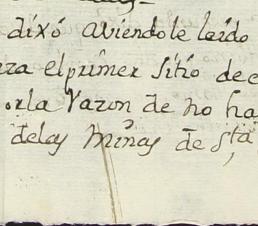 dixó aviendole laido
za el primer Sitio de c
orla Razon de no ha
delas Minas de Sta